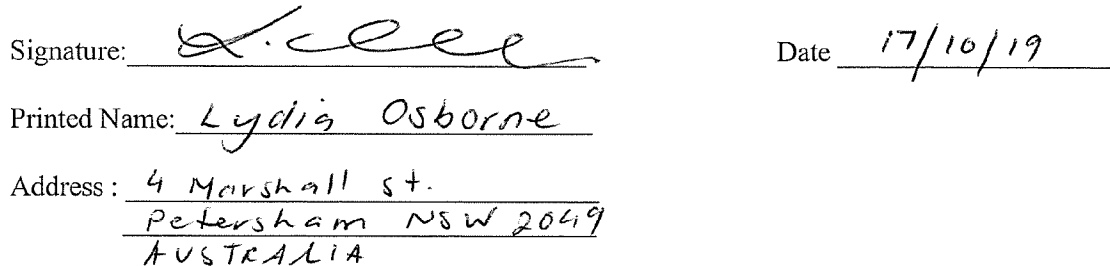 Signature: Date 17/10/19
Printed Name: Lydia Osborne
Address : 4 Marshall St.
Petersham NSW 2049
AUSTRALIA